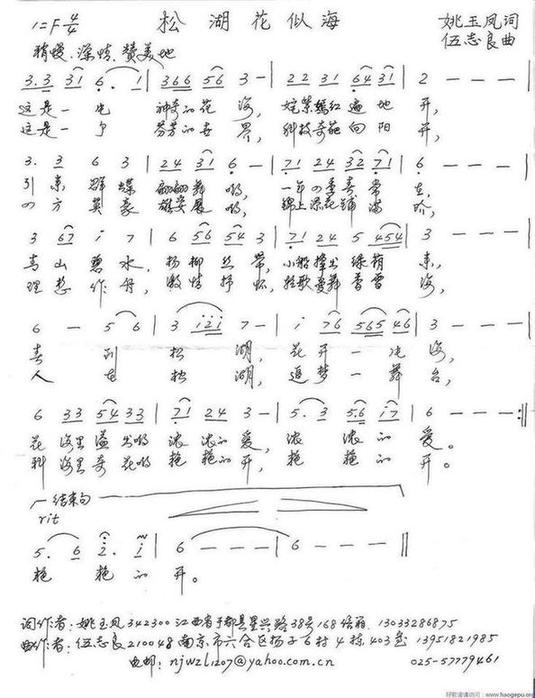 松湖花似海
1=F 4/4
姚玉凤词
伍志良曲
稍慢、深情、赞美地
3.3 31 6. 1 | 366 56 3 - | 22 31 64 31 | 2 - - - |
这是一片 神奇的花海, 姹紫嫣红遍地开,
这是一个 芬芳的世界, 科技奇葩向阳开,
3. 3 6 3 | 24 31 6 - | 71 24 32 71 | 6 - - - |
引来群蝶 翩翩舞哟, 一年四季春常在,
四方英豪 雄姿展哟, 锦上添花铺满
3 67 i 7 | 6 56 54 3 | 71 24 5 454 | 3 - - - |
青山碧水, 杨柳丝带, 小船撑出绿荫来,
理想作舟, 激情抒怀, 轻歌曼舞香雪海,
6 - 5 6 | 3 i2i 7 - | i 76 565 46 | 3 - - - |
春到松湖, 花开一片海,
人在松湖, 追梦一舞台,
6 33 54 33 | 71 24 3 - | 5. 3 5.6 i7 | 6 - - - :||
花海里溢出哟 浓浓的爱, 浓浓的爱。
科海里奇花哟 艳艳的开, 艳艳的开。
结束句
rit
5. 6 2. i | 6 - - - - | 6 - - - ||
艳艳的开。
词作者: 姚玉凤 342300 江西省于都县星兴路38号168信箱 13033286875
曲作者: 伍志良 210048 南京市六合区扬子6村4栋403室 13951821985
电邮: njwzl1207@yahoo.com.cn 025-57779461
www.haogepu.org